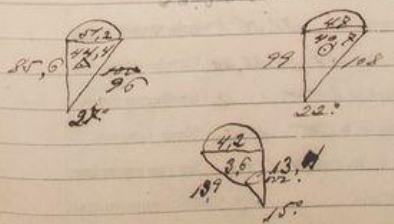 51,2
44,4
85,6
96
27°
48
40,7
99
108
22°
4,2
3,6
13,
13,9
15°